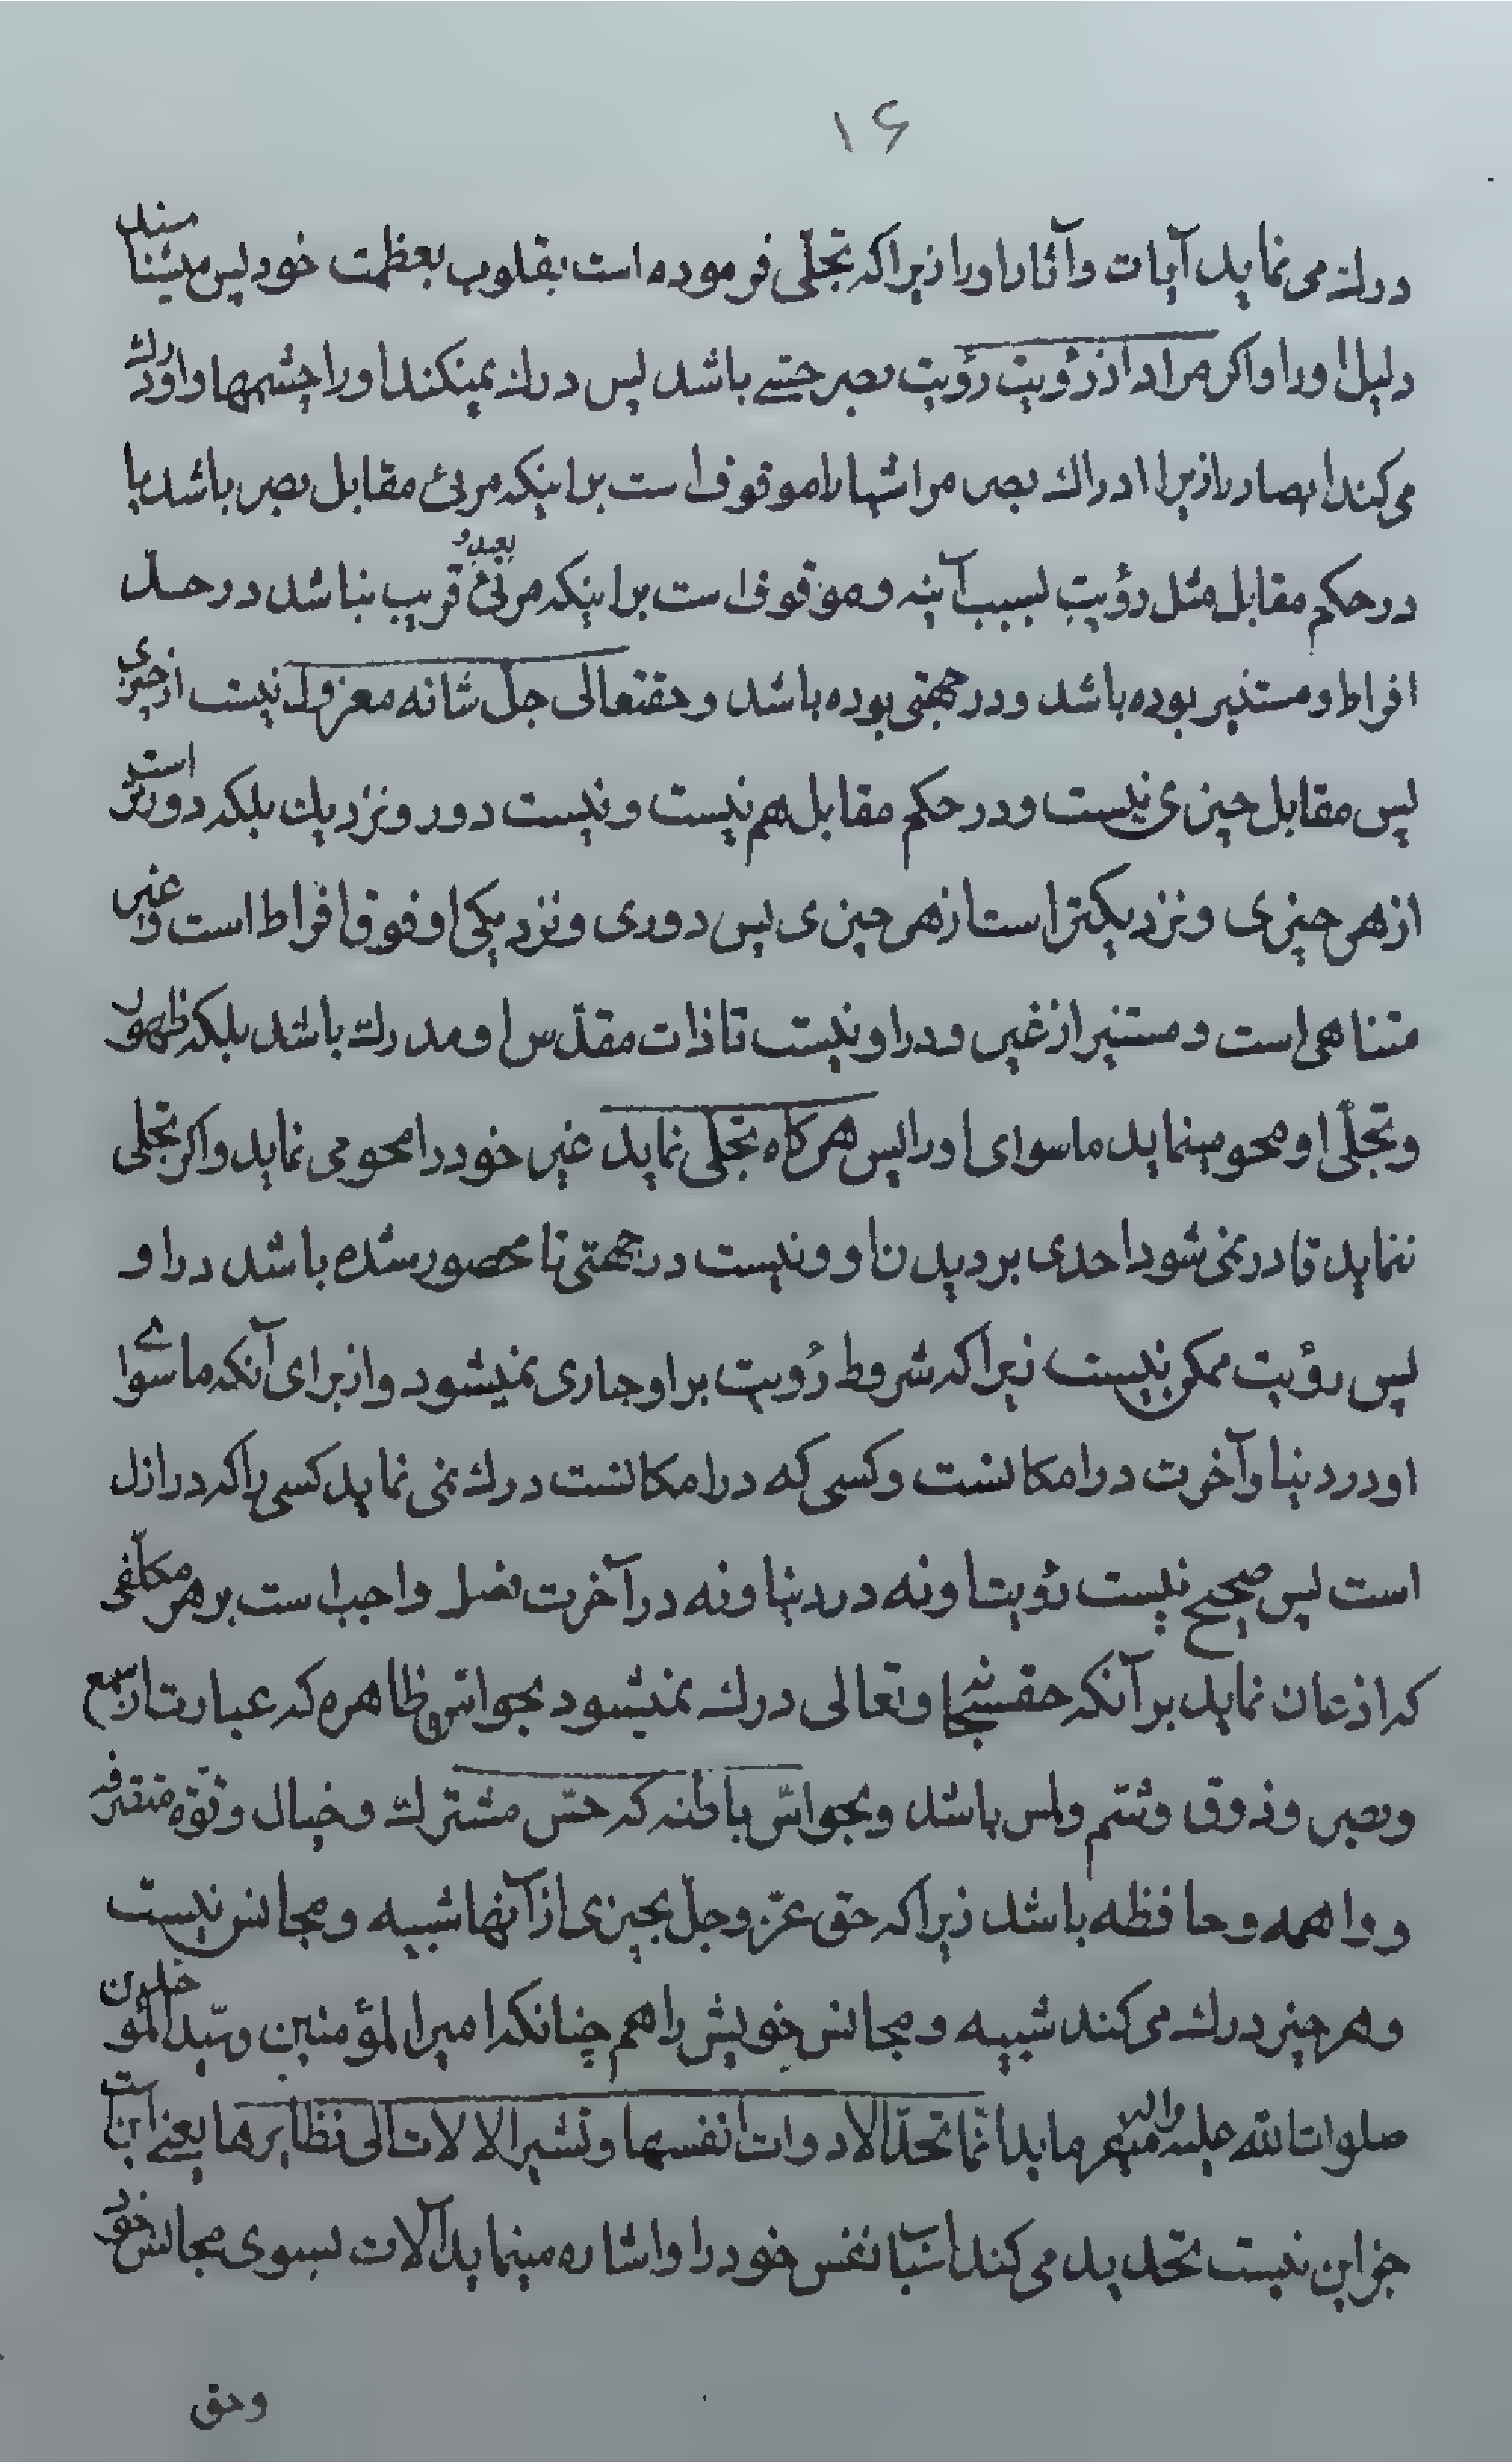 ۱۶
درك می نماید آیات و آثار او را زیرا که تجلّی فرموده است بقلوب بعظمت خود پس میشناسند
دلیل او را و اکر مراد از رؤیت رؤیت بصر حسّے باشد پس درك نمیکند او را چشمها و او درك
می کند ابصار را زیرا ادراك بصر مر اشیا را موقوف است بر اینکه مرئ مقابل بصر باشد یا
در حکم مقابل مثل رؤیت بسبب آینه و موقوف است بر اینکه مرئ بعید و قریب نباشد در حدّ
افراط و مستنیر بوده باشد و در جهتی بوده باشد و حقتعالی جلّ شانه معزول نیست از چیزی
پس مقابل چیزی نیست و در حکم مقابل هم نیست و نیست دور و نزدیك بلکه دورتر است
از هر چیزی و نزدیکتر است از هر چیزی پس دوری و نزدیکی او فوق افراط است و غیر
متناهی است و مستنیر از غیر و در او نیست تا ذات مقدّس او مدرك باشد بلکه ظهور
و تجلّی او محو مینماید ماسوای او را پس هر کاه تجلّی نماید غیر خود را محو می نماید و اکر تجلی
ننماید قادر نمی شود احدی بر دیدن او و نیست در جهتی تا محصور شده باشد در او
پس رؤیت ممکن نیست زیرا که شروط رؤیت بر او جاری نمیشود و از برای آنکه ماسوای
او در دنیا و آخرت در امکانست و کسی که در امکانست درك نمی نماید کسی را که در ازل
است پس صحیح نیست رؤیت او نه در دنیا و نه در آخرت فصل واجب است بر هر مکلّفی
که اذعان نماید بر آنکه حق سبحانه و تعالی درك نمیشود بحواسّ ظاهره که عبارت از سمع
و بصر و ذوق و شم و لمس باشد و بحواسّ باطنه که حسّ مشترك و خیال و قوّه متفرقه
و واهمه و حافظه باشد زیرا که حق عزّ و جلّ بچیزی از آنها شبیه و مجانس نیست
و هر چیز درك می کند شبیه و مجانس خویش را هم چنانکه امیر المؤمنین و سیّد الموحدین
صلوات الله علیه و اله میفرماید انّما تحدّ الادوات انفسها و تشیر الالات الی نظایرها یعنے اینست
جز این نیست تحدید می کند اسباب نفس خود را و اشاره مینماید آلات بسوی مجانس خود
و حق